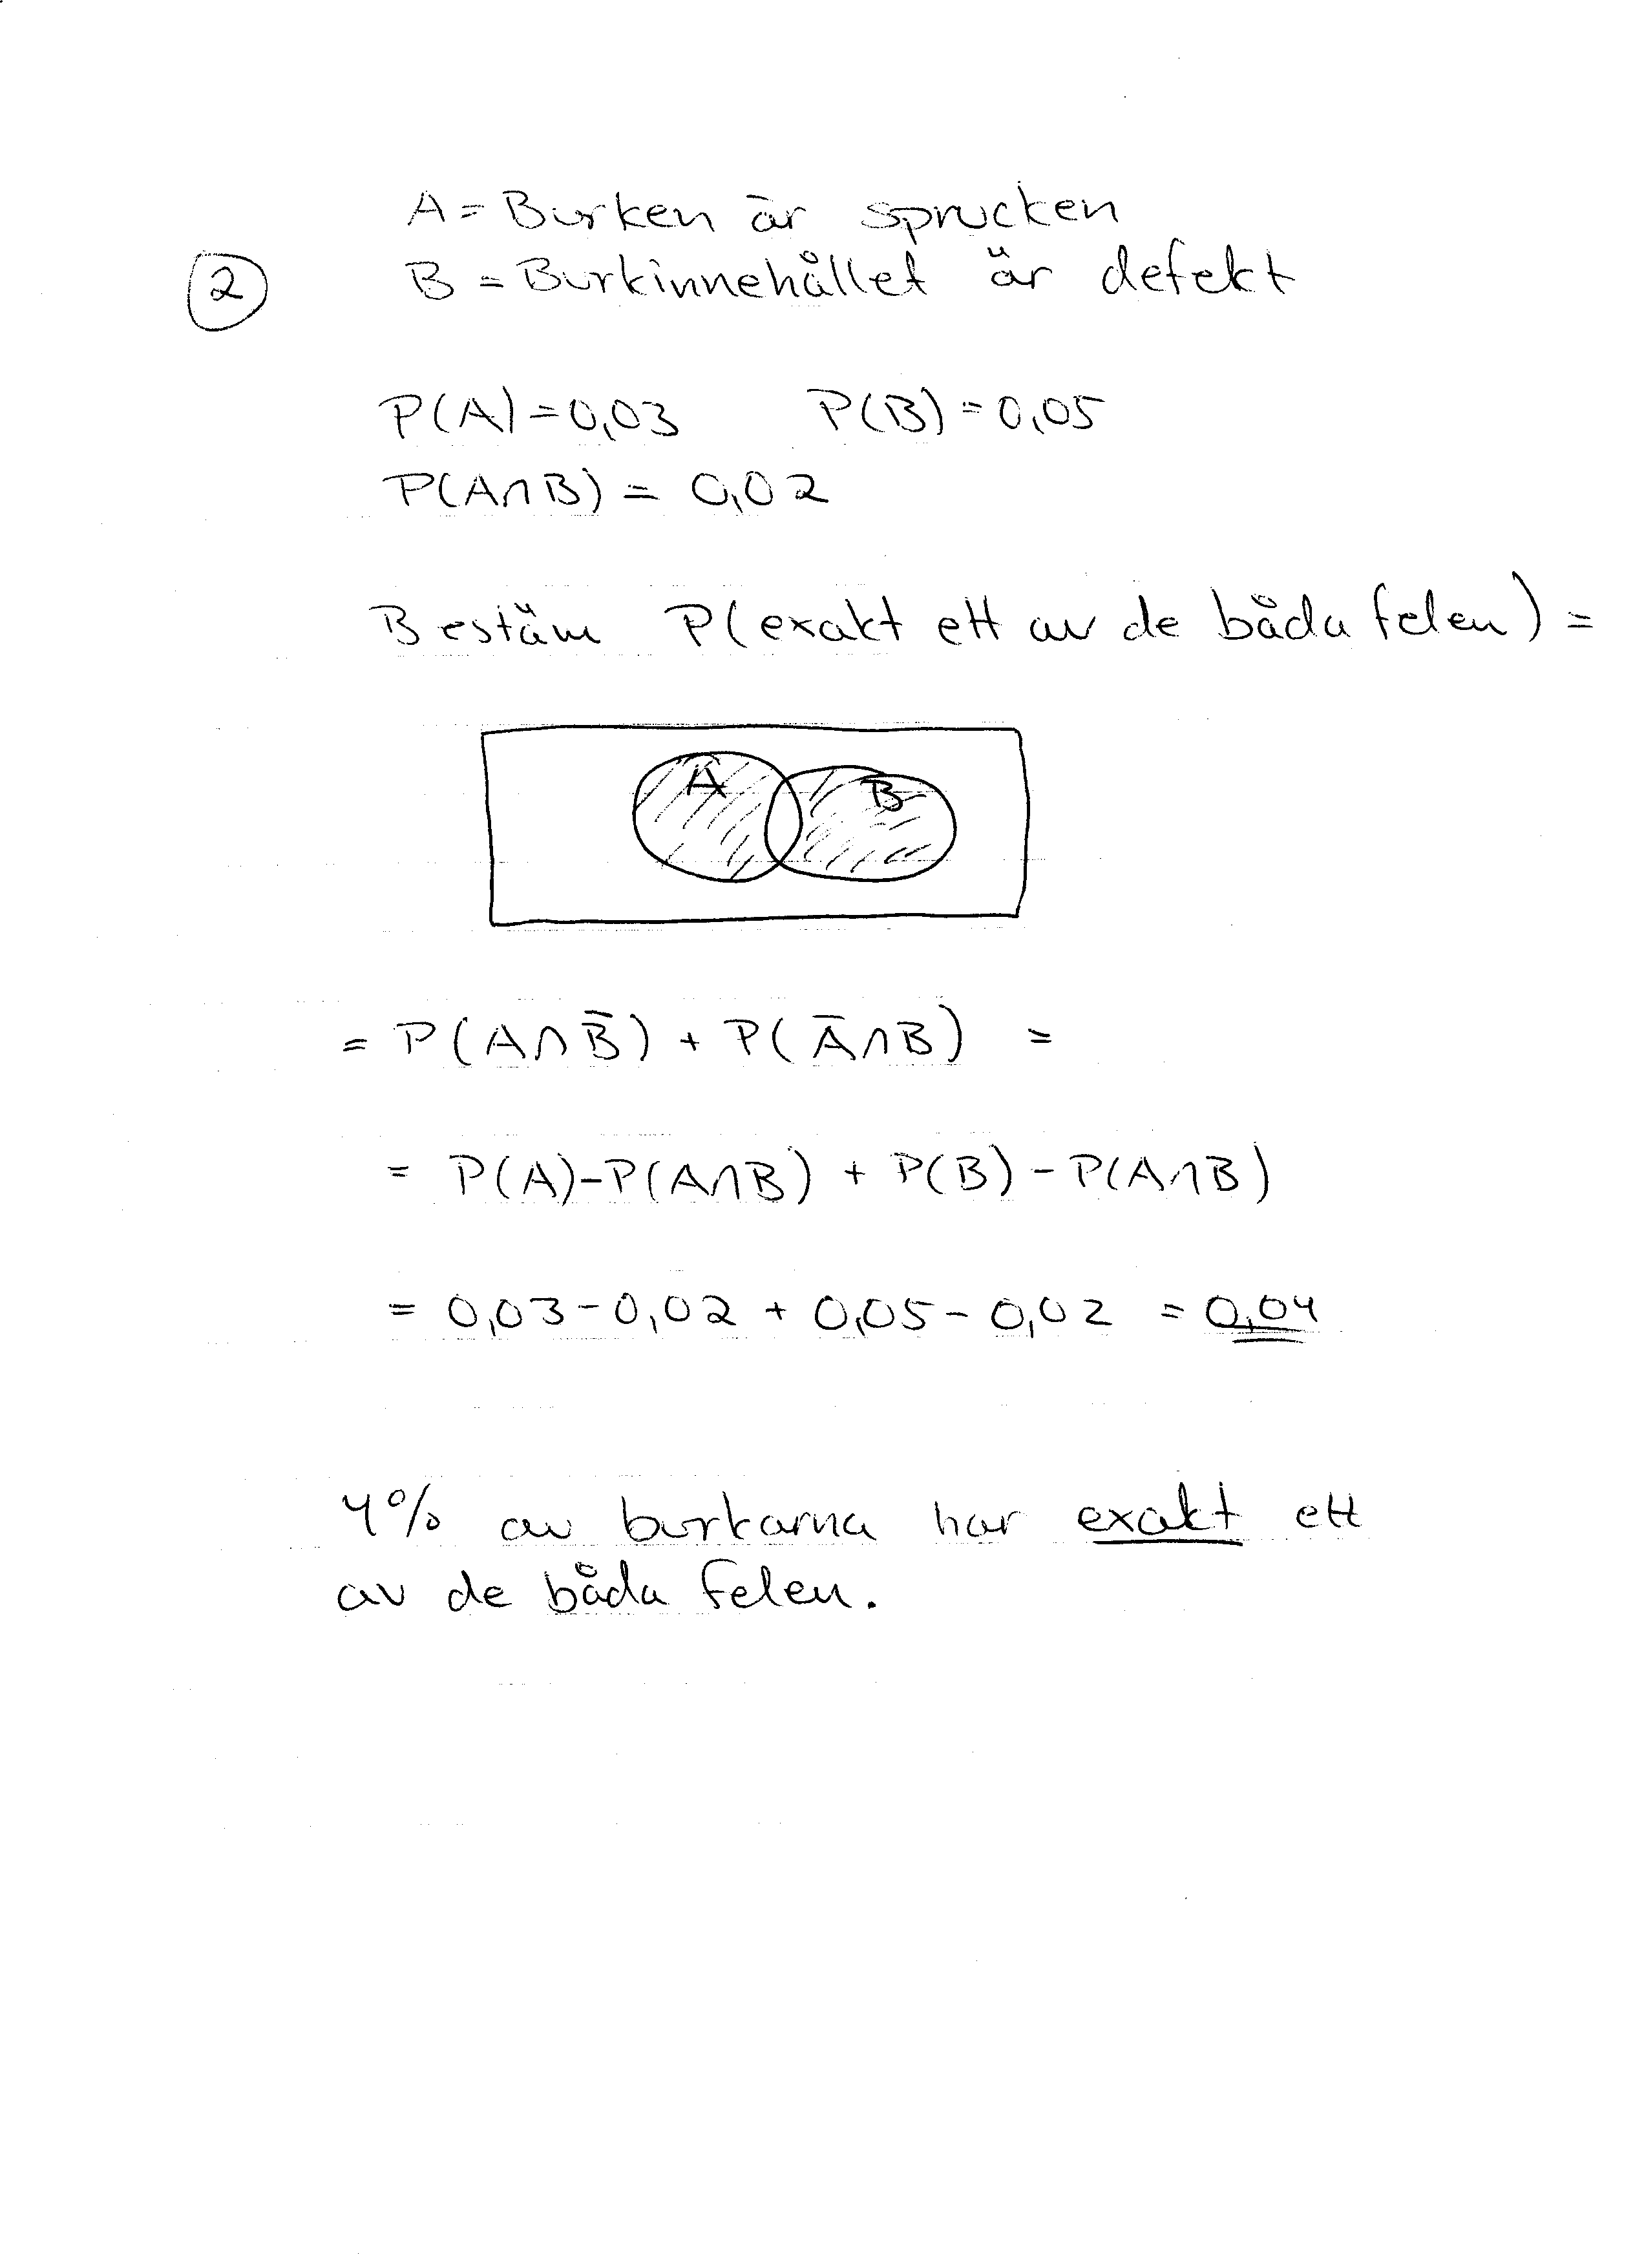 A = Burken är sprucken
② B = Burkinnehållet är defekt
P(A) = 0,03 P(B) = 0,05
P(A∩B) = 0,02
Bestäm P(exakt ett av de båda felen) =
A B
= P(A∩B̄) + P(Ā∩B) =
= P(A)-P(A∩B) + P(B) - P(A∩B)
= 0,03 - 0,02 + 0,05 - 0,02 = 0,04
4% av burkarna har exakt ett
av de båda felen.